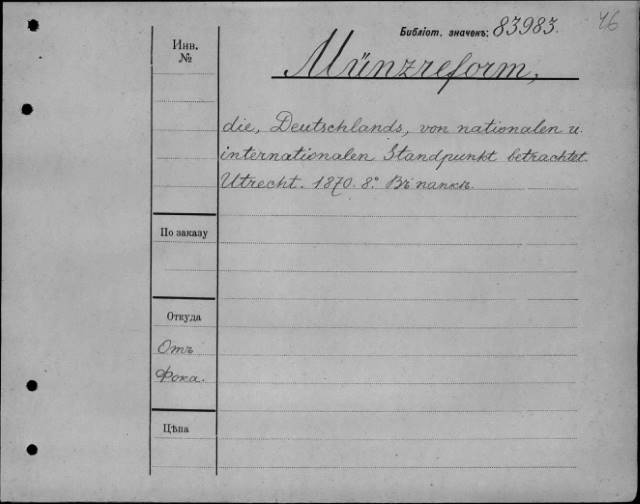 Библіот. значекъ: 83983.
46
Инв. №
Münzreform,
die, Deutschlands, von nationalen u.
internationalen Standpunkt betrachtet.
Utrecht. 1870. 8.° Въ папкѣ.
По заказу
Откуда
Отъ
Фока.
Цѣна